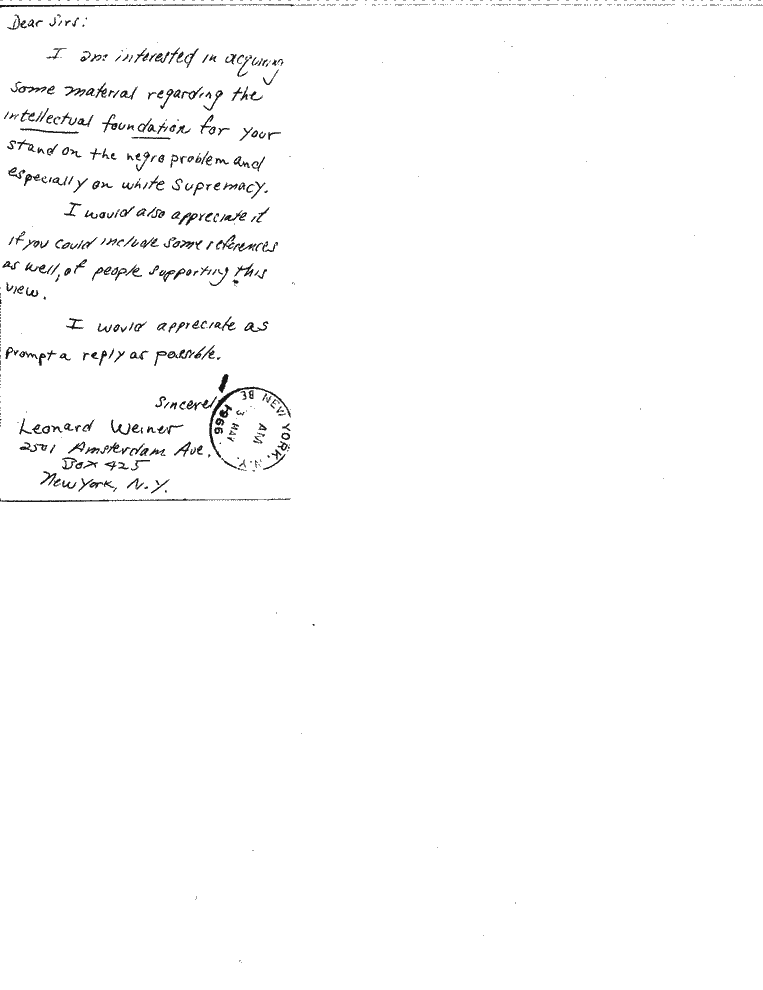 Dear Sirs:
I am interested in acquiring
some material regarding the
intellectual foundation for your
stand on the negro problem and
especially on white supremacy.
I would also appreciate it
if you could include some references
as well, of people supporting this
view.
I would appreciate as
prompt a reply as possible.
Sincerely
Leonard Weiner
2501 Amsterdam Ave.
Box 425
New York, N.Y.
NEW YORK, N.Y.
AM
3 MAY
1966